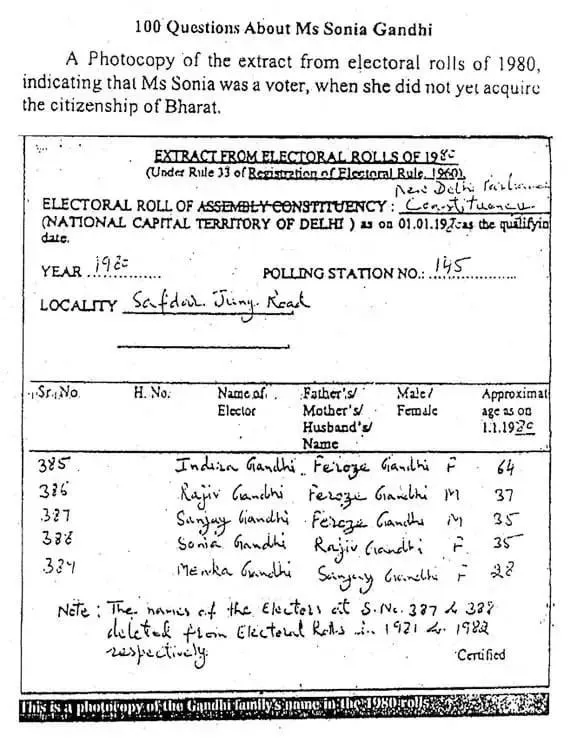 100 Questions About Ms Sonia Gandhi
A Photocopy of the extract from electoral rolls of 1980,
indicating that Ms Sonia was a voter, when she did not yet acquire
the citizenship of Bharat.
EXTRACT FROM ELECTORAL ROLLS OF 1980
(Under Rule 33 of Registration of Electoral Rule, 1960).
New Delhi Parliamen
ELECTORAL ROLL OF ASSEMBLY CONSTITUENCY : Constituency
(NATIONAL CAPITAL TERRITORY OF DELHI ) as on 01.01.19 as the qualifyin
date.
YEAR 1980 POLLING STATION NO.: 145
LOCALITY Safdar Jung Road
Sr. No. H. No. Name of Elector Father's/ Mother's/ Husband's/ Name Male/ Female Approximat age as on 1.1.1980
385 Indira Gandhi Feroze Gandhi F 64
386 Rajiv Gandhi Feroze Gandhi M 37
387 Sanjay Gandhi Feroze Gandhi M 35
388 Sonia Gandhi Rajiv Gandhi F 35
389 Menka Gandhi Sanjay Gandhi F 28
Note : The names of the Electors at S.No. 387 & 388
deleted from Electoral Rolls in 1981 & 1982
respectively.
Certified
This is a photocopy of the Gandhi family's name in the 1980 rolls